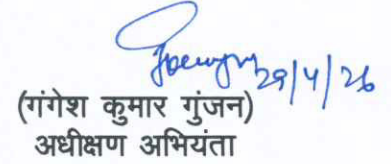 29/4/26
(गंगेश कुमार गुंजन)
अधीक्षण अभियंता